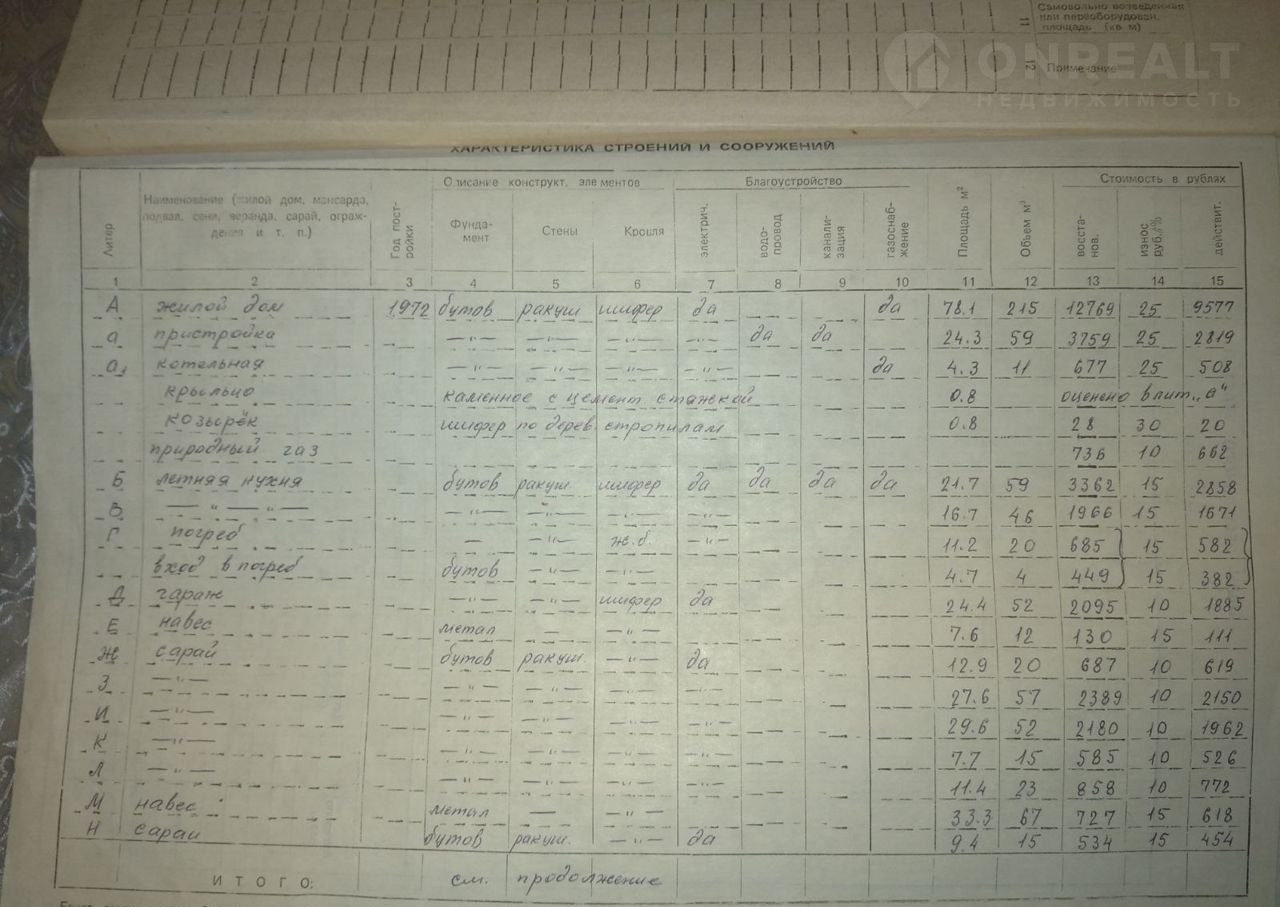 Самовольно возведенная
или переоборудован.
площадь (кв м)
11
12 Примечание
ONREALT
НЕДВИЖИМОСТЬ
ХАРАКТЕРИСТИКА СТРОЕНИЙ И СООРУЖЕНИЙ
Литер
Наименование (жилой дом, мансарда,
подвал, сени, веранда, сарай, ограж-
дения и т. п.)
Год пост-
ройки
Описание конструкт. элементов
Фунда-
мент
Стены
Кровля
Благоустройство
электрич.
водо-
провод
канали-
зация
газоснаб-
жение
Площадь м²
Объем м³
Стоимость в рублях
восста-
нов.
износ
руб./%
действит.
1 2 3 4 5 6 7 8 9 10 11 12 13 14 15
А жилой дом 1972 бутов ракуш шифер да да 78.1 215 12769 25 9577
а пристройка —"— —"— —"— —"— да да 24.3 59 3759 25 2819
а₁ котельная —"— —"— —"— —"— да 4.3 11 677 25 508
крыльцо каменное с цемент стяжкой 0.8 оценено в лит „а"
козырёк шифер по дерев. стропилам 0.8 28 30 20
природный газ 736 10 662
Б летняя кухня бутов ракуш. шифер да да да да 21.7 59 3362 15 2858
В — " — " — —"— —"— —"— —"— 16.7 46 1966 15 1671
Г погреб — —"— ж.б. —"— 11.2 20 685 15 582
вход в погреб бутов —"— —"— 4.7 4 449 15 382
Д гараж —"— —"— шифер да 24.4 52 2095 10 1885
Е навес метал — —"— 7.6 12 130 15 111
Ж сарай бутов ракуш. —"— да 12.9 20 687 10 619
З —"— —"— —"— —"— —"— 27.6 57 2389 10 2150
И —"— —"— —"— —"— —"— 29.6 52 2180 10 1962
К —"— —"— —"— —"— —"— 7.7 15 585 10 526
Л —"— —"— —"— —"— —"— 11.4 23 858 10 772
М навес метал — —"— — 33.3 67 727 15 618
Н сарай бутов ракуш. —"— да 9.4 15 534 15 454
ИТОГО: см. продолжение